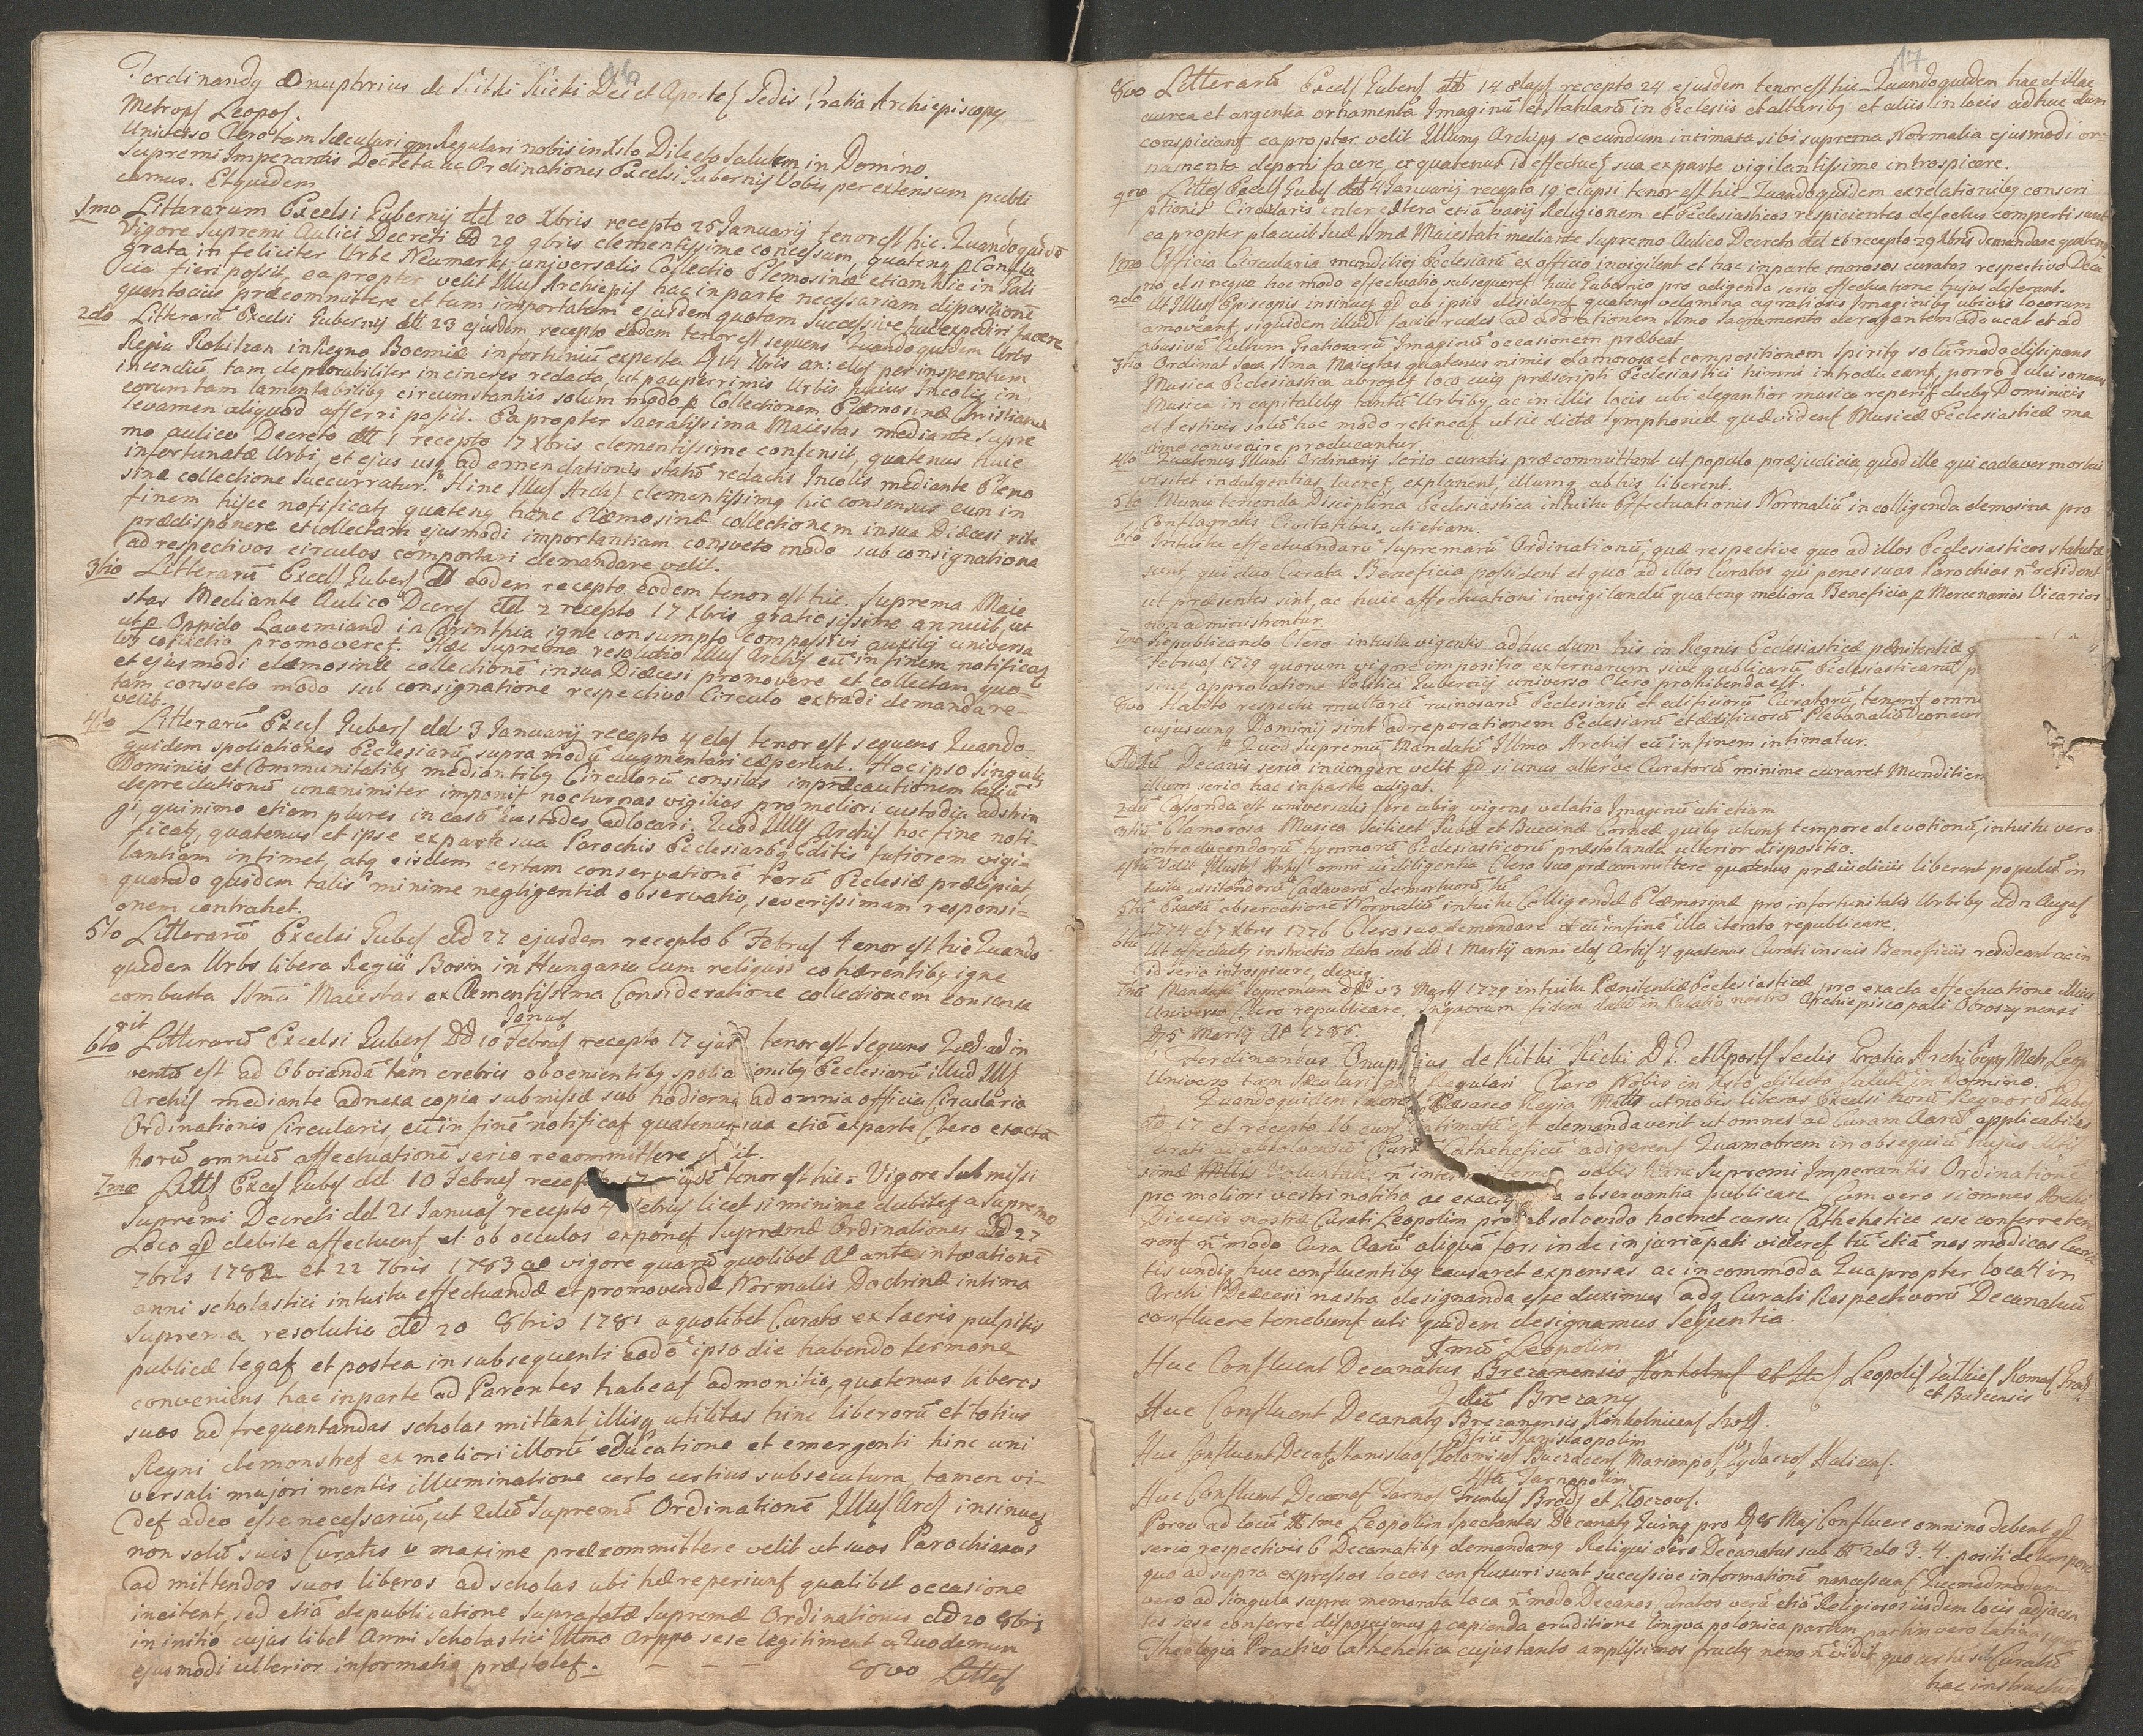 16
Ferdinandq Onuphrius de Kitki Kicki Dei et Apostcȩ Sedis Gratia Archiepiscopq
Metropȩ Leopoȩ
Universo Clero tam Sæculari qm Regulari nobis in Xsto Dilecto Salutem in Domino.
Supremi Imperantis Decreta ac Ordinationes Excelsi Gubernij Vobis per extensum publi
camus. Et quidem
1mo Litterarum Excelsi Gubernij dd 20 Xbris recepto 25 Januarij tenor est hic. Quandoquidē
Vigore Supremi Aulici Decreti dd 29 9bris clementissime concessum, quatenq p Confla
grata infeliciter Urbe Neumarkt universalis Collectio Elemosinæ etiam hic in Gali
cia fieri possit, ea propter velit Illus Archiepis hac in parte necessariam dispositionē
quantocius præcommittere et tam importatam ejusdem quotam successive expediri facere
2do Litterarū Excelsi Gubernij dd 23 ejusdem recepto eodem tenor est sequens Quandoquidem Urbs
Regia Rokitzan in Regno Boemiæ infortuniū experta D 14 7bris an: elaȩ per insperatum
incendiū tam deplorabiliter in cineres redacta, ut pauperrimis Urbis hujus Incolis in
eorum tam lamentabilibq circumstantiis solum modo p Collectionem Elæmosinæ Christianæ
levamen aliquod afferri possit. Ea propter Sacratissima Maiestas mediante Supre
mo aulico Decreto dd 1 recepto 17 Xbris clementissime consensit, quatenus huic
infortunatæ Urbi, et ejus usq ad emendationis statū redactis Incolis mediante Elemo
sinæ collectione succurratur. Hinc Illus Archȩ clementissimq hic consensus eum in
finem hisce notificatq quatenq hanc Elæmosinæ collectionem in sua Diæcesi rite
prædisponere et collectam ejusmodi importantiam consveto modo sub consignatione
ad respectivos circulos comportari demandare velit.
3tio Litterarū Excelȩ Guberȩ dd eodem recepto eodem tenor est hic. Suprema Maie
stas Mediante Aulico Decreȩ dd 2 recepto 17 Xbris gratiosissime annuit, ut
ut p Oppido Lavemiand in Carinthia igne consumpto compassivi auxilij universa
lis collectio promoveretȩ. Hæc Suprema resolutio Illus Archij eū in finem notificatȩ
et ejusmodi elæmosinæ collectionē in sua Diæcesi promovere et collectam quo-
tam consveto modo sub consignatione respectivo Circulo extradi demandare
velit.
4to Litterarū Exceȩ Guberȩ dd 3 Januarij recepto 4 elaȩ tenor est sequens Quando-
quidem spoliationes Ecclesiarū supra modū augmentari cæperunt. Hoc ipso Singulis
Dominiis et Communitatibq mediantibq Circulorū consiliis in præcautionem taliū
deprædationū unanimiter imponiȩ nocturnas vigilias pro meliori custodia adstrin
gi, quinimo etiam plures in casū custodes adlocari. Quod Illus Archiȩ hoc fine noti-
ficatȩ, quatenus et ipse ex parte sua Parochis Ecclesiarūq Editis tutiorem vigi-
lantiam intimet, atq eisdem certam conservationē rerū Ecclesiæ præcipiat
quando quidem talis minime negligentiæ observatio, severissimam responsi-
onem contrahet.
5to Litterarū Excelsi Gubeȩ dd 27 ejusdem recepto 6 Februȩ tenor est hic Quando
quidem Urbs libera Regia Bosin in Hungaria cum reliquis cohærentibq igne
combusta Ssmā Maiestas ex Clementissima Consideratione collectionem consense
rit
Januȩ
6to Litterarū Excelsi Guberȩ dd 10 Februȩ recepto 17 ejus tenor est sequens Quod ad in
ventū est ad Obviandā tam crebris obvenientibq spolia ionibq Ecclesiarū illud Illȩ
Archiȩ mediante adnexa copia submissæ sub hodierna ad omnia officia Circularia
Ordinationis Circularis, eū in finē notificaȩ quatenus sua etiā ex parte Clero exactā
horū omniū affectuationē serio recommittere velit.
7mo Littȩ Exceȩ Gubeȩ dd 10 Februȩ recepto 17 ejusd tenor est hic = Vigore Submissi
Supremi Decreti dd 21 Januaȩ recepto 4 Februȩ licet si minime dubiteȩ a Supremo
Loco qd debite affectuenȩ et ob occulos exponeȩ Supremæ Ordinationes dd 27
7bris 1782 et 22 7bris 1783 ac vigore quarū quolibet Ao ante intvationē
anni scholastici intuitu effectuandæ et promovendæ Normalis Doctrinæ intima
Suprema resolutio dd 20 8bris 1781 a quolibet Curato ex Sacris pulpitis
publicæ legaȩ et postea in subsequenti eodē ipso die habendo termone
conveniens hac in parte ad Parentes habeaȩ admonitio, quatenus liberos
suos ad frequentandas scholas mittant illisq utilitas hinc liberorū et totius
Regni demonstreȩ ex meliori illorū educatione et emergenti hinc uni
versali majori mentis illuminatione certo certius subsecutura, tamen vi-
deȩ adeo esse necessariū, ut Talū Supremā Ordinationē Illus Arcȩ insinueȩ
non solū suis Curatis v maxime præcommittere velit ut suos Parochianos
ad mittendos suos liberos ad scholas ubi hæ reperiunȩ qualibet occasione
incitent, sed etiā de publicatione Suprafatæ Supremæ Ordinationis dd 20 8bris
in initio cujus libet Anni Scholastici Illmo Arppo sese legitiment a Quo demum
ejusmodi ulterior informatio præstoleȩ. - - -
8vo Litteȩ
17
8vo Litterarū Excelȩ Gubenȩ dd 14 elapȩ recepto 24 ejusdem tenor est hic - Quandoquidem hac et illac
aurea et argentea ornamenta Imaginū et statuarū in Ecclesiis et altaribq et aliis in locis ad huc dum
conspicianȩ ea propter velit Illumq Archipq secundum intimata sibi suprema Normalia ejusmodi or-
namenta deponi facere, et quatenus id effectueȩ sua ex parte vigilantissime introspicere.
9no Litteȩ Excelȩ Gubeȩ dd 4 Januarij recepto 19 elapsi tenor est hic - Quandoquidem ex relationibq conscri
ptionis Circularis inter cætera etiā varij Religionem et Ecclesiasticos respicientes defectus comperti sunt
ea propter placuit Suæ Ssmæ Maiestati mediante Supremo Aulico Decreto dd et recepto 29 Xbris demandare quatenq
1mo Officia Circularia munditiei Ecclesiarū ex officio invigilent et hac in parte morosos curatos respectivo Deca
no et si nequa hoc modo effectuatio subsequereȩ huic Gubernio pro adigenda serio effectuatione hujus deferant.
2do Ut Illusȩ Episcopis insinueȩ qd ab ipsis desidereȩ quatenq velamina a gratiosis Imaginibq ubivis locorum
amoveanȩ, siquidem illud facile rudes ad adorationem Ssmo Sacramento derogantem adducat et ad
abusivū Cultum Gratiosarū Imaginū occasionem præbeat.
3tio Ordinat sua Ssma Maiestas quatenus nimis clamorosa et compositionem Spiritq solū modo dissipans
Musica Ecclesiastica abrogeȩ loco cuiq præscripti Ecclesiastici himni introducanȩ, porro dulci sonans
Musica in capitalibq tantū Urbibq, ac in illis locis ubi elegantior musica reperiȩ diebq Dominicis
et festivis solū hac modo retineaȩ ut sic dictæ symphoniæ quæ videnȩ Musicæ Ecclesiasticæ ma
xime convenire producantur.
4to Quatenus Illumi Ordinarij Serio curatis præcommittant ut populo præjudicia, quod ille qui cadaver mortui
visitet indulgentias lucreȩ, explanent, illumq ab his liberent.
5to Manu tenenda Disciplina Ecclesiastica intuitu Effectuationis Normaliū in colligenda elemosina pro
Conflagratis Civitatibus, uti etiam.
6to Intuitu effectuandarū Supremarū Ordinationū, quæ respective quo ad illos Ecclesiasticos statutæ
sunt, qui duo Curata Beneficia possident et quo ad illos Curatos qui penes suas Parochias n resident
ut præsentes sint, ac huic affectuationi invigilandū quatenq meliora Beneficia p Mercenarios Vicarios
non administrentur.
7mo Republicando Clero intuitu vigentis adhuc dum his in Regnis Ecclesiasticæ pænitentiæ
Februaȩ 1779 quorum vigore impositio externarum sive publicarū Ecclesiasticarū
sine approbatione Politici Gubernij universo Clero prohibenda est.
8vo Habito respectu multarū ruinosarū Ecclesiarū et edificiorū Curatorū, tenenȩ omn
cujuscunq Dominij sint ad reperationem Ecclesiarū et ædificiorū Plebanaliū concur
Quod Supremū Mandatū Illmo Archiȩ eū in finem intimatur.
Ad 1ū Decanis serio iniungere velit qd si unus alterve Curatorū minime curaret Munditiem
illum serio hac in parte adigat.
2dū Cassanda est universalis fere ubiq vigens velatio Imaginū uti etiam
3tiū Clamorosa Musica scilicet Tubæ et Buccinæ Corneæ quibq utunȩ tempore devotionū, intuitu vero
introducendorū hymnorū Ecclesiasticorū præstolanda ulterior dispositio.
4tū Velit Illustȩ Archȩ omni cū diligentia Clero suo præcommittere quatenus præiudiciis liberent populū in
tuitu visitandorū Cadaverū demortuorū, ū
5tū Exacta observatione Normaliū intuitu Colligendæ Elæmosinæ pro infortunatis Urbibq dd 2 Augȩ
1774 et 7 Xbris 1776 Clero suo demandare et eū in finē illa iterato republicare.
6tū Ut effectueȩ instructio data sub dd 1 Martij anni elaȩ Artiȩ 4 quatenus Curati in suis Beneficiis resideant ac in
id serio introspicere, deniq
7mū Mandatū Supremum dd 3 Martȩ 1779 intuitu Pænitentiæ Ecclesiasticæ pro exacta effectuatione illius
Universo Clero republicare. In quorum fidem datū in Palatio nostro Archiepiscopali Obroszynensi
D 5 Martij Ao 1786
Ferdinandus Onuphrius de Kitki Kicki D. G. et Apostȩ Sedis Gratia Archi Eppq Metr. Leop
Universo tam Sæculari qm Regulari Clero Nobis in Xsto dilecto Salutē in Domino.
Quandoquidem Sacra Cæsareo Regia Mattȩ ut nobis liberas Excelsi horū Regnorū Gubeȩ
dd 17 et recepto 16 curȩ intimatū est demandaverit ut omnes ad Curam Aarū applicabiles
Curati ad absolvendū Cursū Catheheticū adigerenȩ Quamobrem in obsequiū hujus Altis
simæ voluntatis n intermittemus vobis hanc Supremi Imperantis Ordinationē
pro meliori vestri notitia ac exactiori observantia publicare. Cum vero si omnes Archi
Diæcesis nostræ Curati Leopolim pro absolvendo hocmet cursu Cathehetice sese conferre tene
renȩ n modo Cura Aarū aliquā forȩ inde injuriā pati videreȩ tū etiā nos modicas Cura
tis undiq huc confluentibq causaret expensas ac incommoda Quapropter loca 4 in
Archi Diæcesi nostra designanda esse duximus adq Curati Respectivorū Decanatuū
confluere tenebunȩ uti quidem designamus Sequentia.
1mū Leopolim
Huc Confluent Decanatus Brezanensis Konkolnȩ et St Leopolisȩ Gallieȩ Komaȩ Grodȩ
et Buscensis
2dū Brezany
Huc Confluent Decanatq Brezanensis Konkolnicenȩ Swȩ.
3tiū Stanislaopolim
Huc Confluent Decaȩ Stanislaoȩ Kolomieȩ Buczacenȩ Mariampoȩ, Zydaczoȩ Halicenȩ.
4tū Tarnopolim
Huc Confluent Decanaȩ Tarnoȩ Trembȩ Brodȩ et Złoczovȩ.
Porro ad locū dd 1mo Leopolim Spectantes Decanatq Quinq pro D 28 Maj Confluere omnino debent qd
serio respectivis 6 Decanatibq demandamq Reliqui vero Decanatus sub dd 2do 3. 4. positi de tempore
quo ad supra expressos locos confluxuri sunt successive informationē nanciscenȩ Quemadmodum
vero ad singula supra memorata loca n modo Decanos Curatos verū etiā Religiosos iisdem locis adjacen
tes sese conferre disposuimus p capienda eruditione lingva polonica partim, partim vero latina
Theologia Practico Cathehetica cujus tanto amplissimos fructq nemo n vidit, quo certius sit Curatū
hac instructū